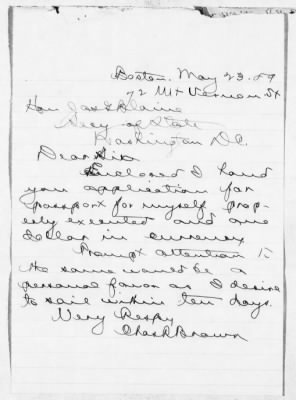 Boston. May 23. 89
72 Mt Vernon St
Hon Jas G Blaine
Secy of State
Washington D.C.
Dear Sir
Enclosed I hand
you application for
passport for myself prop-
erly executed and one
dollar in currency
Prompt attention to
the same would be a
personal favor as I desire
to sail within ten days.
Very Respy
Chas R Brown